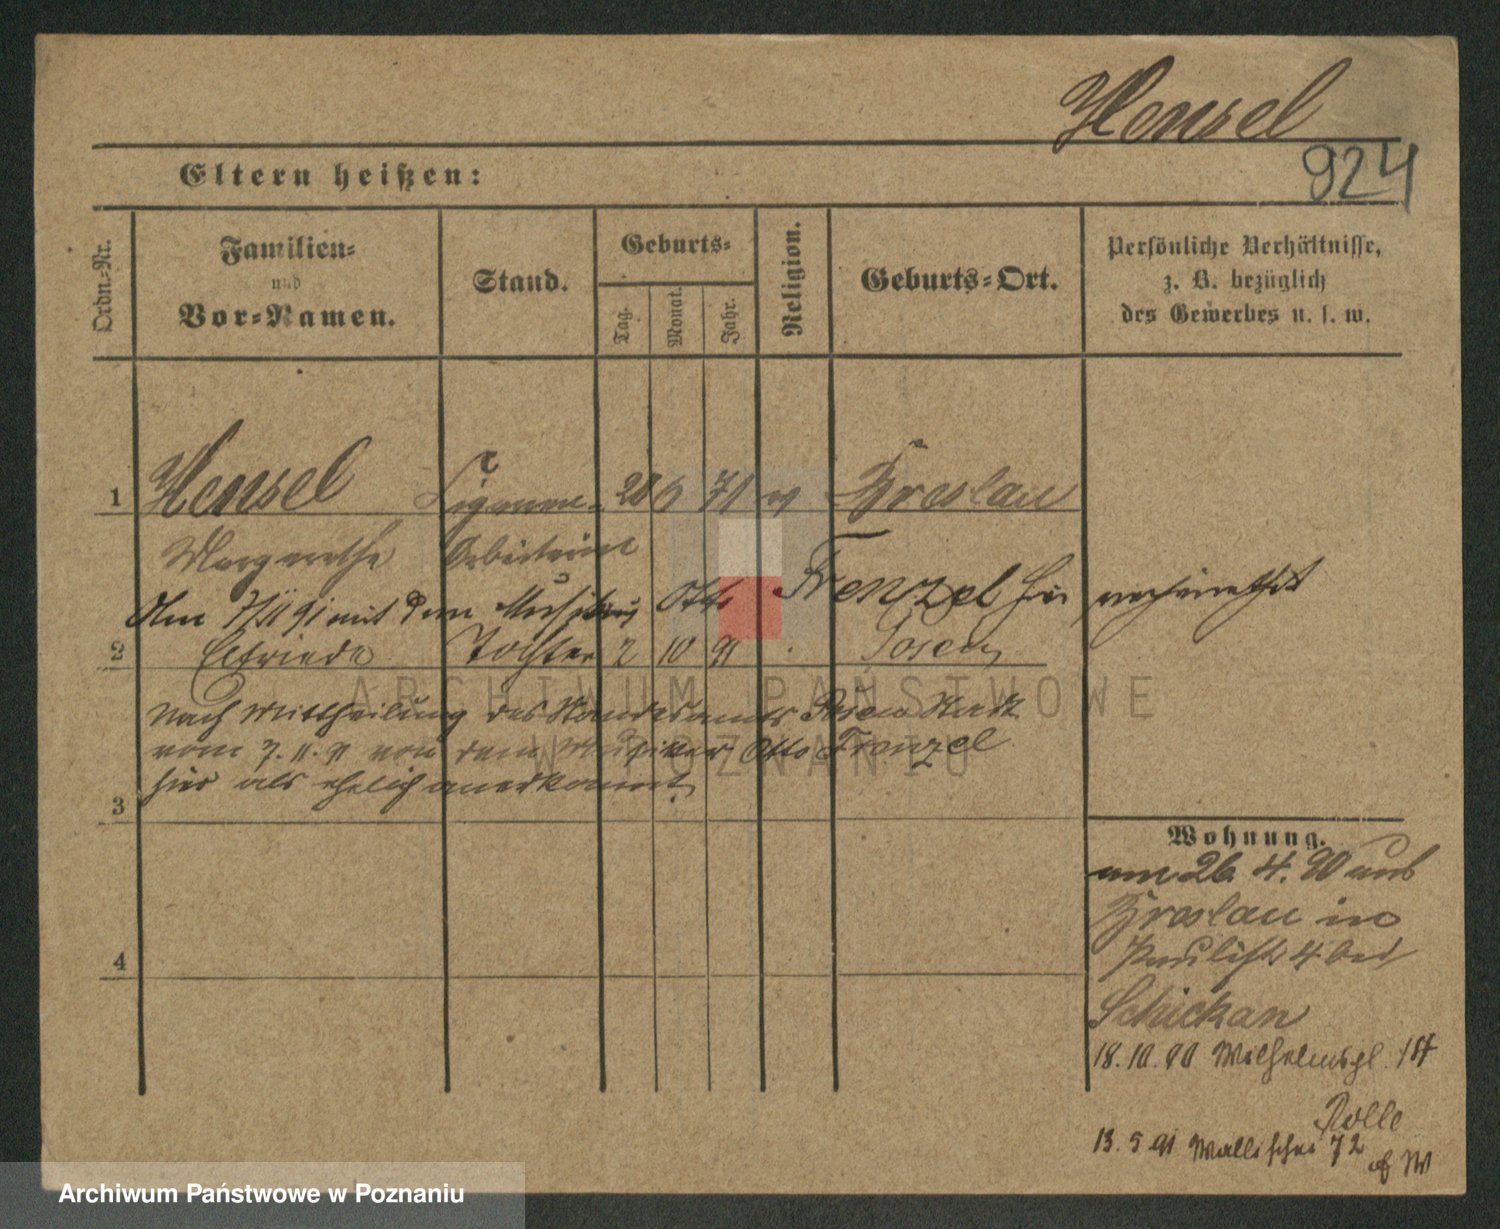 Hensel
924
Eltern heißen:
Ordn.-Nr.
Familien-
und
Vor-Namen.
Stand.
Geburts-
Tag.
Monat.
Jahr.
Religion.
Geburts-Ort.
Persönliche Verhältnisse,
z. B. bezüglich
des Gewerbes u. s. w.
1 Hensel Cigarren- 28 6 71 ev Breslau
Margarethe Arbeiterin
Am 7/11 91 mit dem Musiker Otto Frenzel hier verheirathet
2 Elfriede Tochter 2 10 91 Posen
Nach Mittheilung des Standesamts Posen Stadt
vom 7.11.91 von dem Musiker Otto Frenzel
hier als ehelich anerkannt.
3
4
Wohnung.
am 26. 4. 90 aus
Breslau in
Paulistr 4 bei
Schickan
18.10.90 Wilhelmspl. 18
Rolle
13. 5 91 Wallischei 72
ARCHIWUM PAŃSTWOWE
W POZNANIU
Archiwum Państwowe w Poznaniu